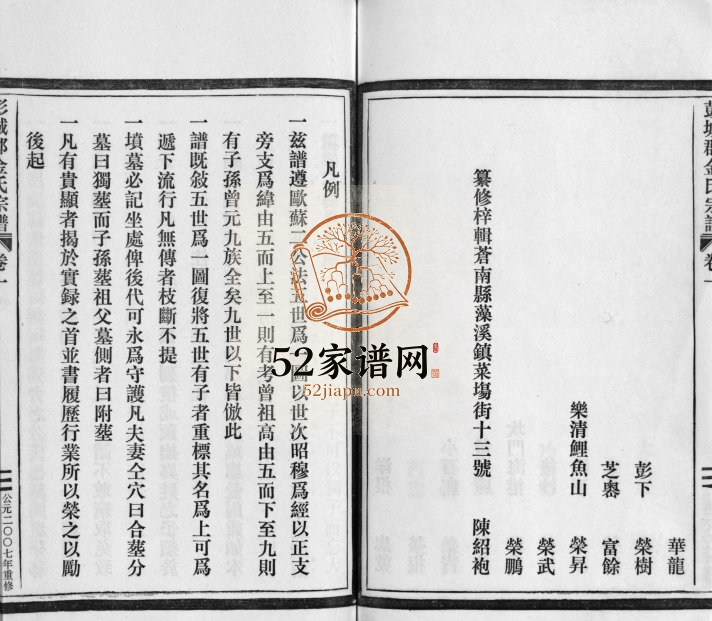 彭城郡金氏宗譜
卷一
華龍
彭下
榮樹
芝嶴
富餘
樂清鯉魚山
榮昇
榮武
榮鵬
纂修梓輯蒼南縣藻溪鎮菜塲街十三號
陳紹袍
凡例
一兹譜遵歐蘇二公法五世爲一圖以世次昭穆爲經以正支
旁支爲緯由五而上至一則有考曾祖高由五而下至九則
有子孫曾元九族全矣九世以下皆倣此
一譜既敍五世爲一圖復將五世有子者重標其名爲上可爲
遞下流行凡無傳者枝斷不提
一墳墓必記坐處俾後代可永爲守護凡夫妻仝穴曰合塟分
墓曰獨塟而子孫塟祖父墓側者曰附塟
一凡有貴顯者揭於實録之首並書履歷行業所以榮之以勵
後起
彭城郡金氏宗譜
卷一
公元二〇〇七年重修
52家谱网
52jiapu.com